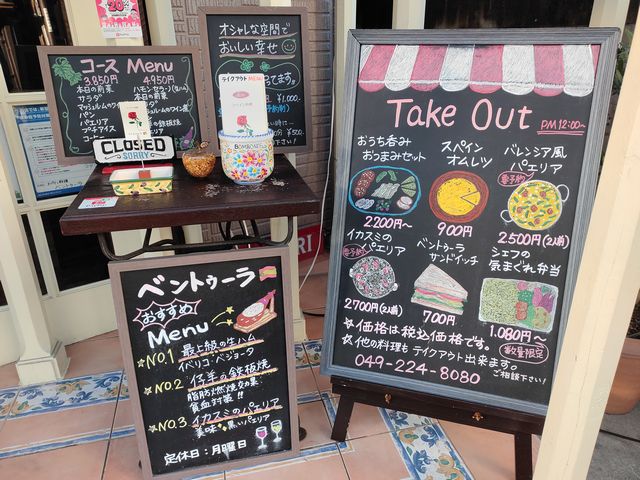 コース Menu
3,850円
本日の前菜
サラダ
パン
パエリア
プチデザート
4950円
CLOSED
SORRY
オシャレな空間で
おいしい幸せ
テイクアウト MENU
Take Out
PM 12:00~
おうち呑み
おつまみセット
2200円~
スペイン
オムレツ
900円
バレンシア風
パエリア
要予約
2,500円(2人前)
イカスミの
パエリア
要予約
2700円(2人前)
ベントゥーラ
サンドイッチ
700円
シェフの
気まぐれ弁当
1,080円~
数量限定
☆価格は税込価格です。
☆他の料理もテイクアウト出来ます。
049-224-8080
ご相談下さい!
ベントゥーラ
おすすめ!
Menu
☆NO.1 最上級の生ハム
イベリコ・ベジョータ
☆NO.2 仔羊の鉄板焼
脂肪燃焼効果・
貧血対策!!
☆NO.3 イカスミのパエリア
美味 黒いパエリア
定休日:月曜日